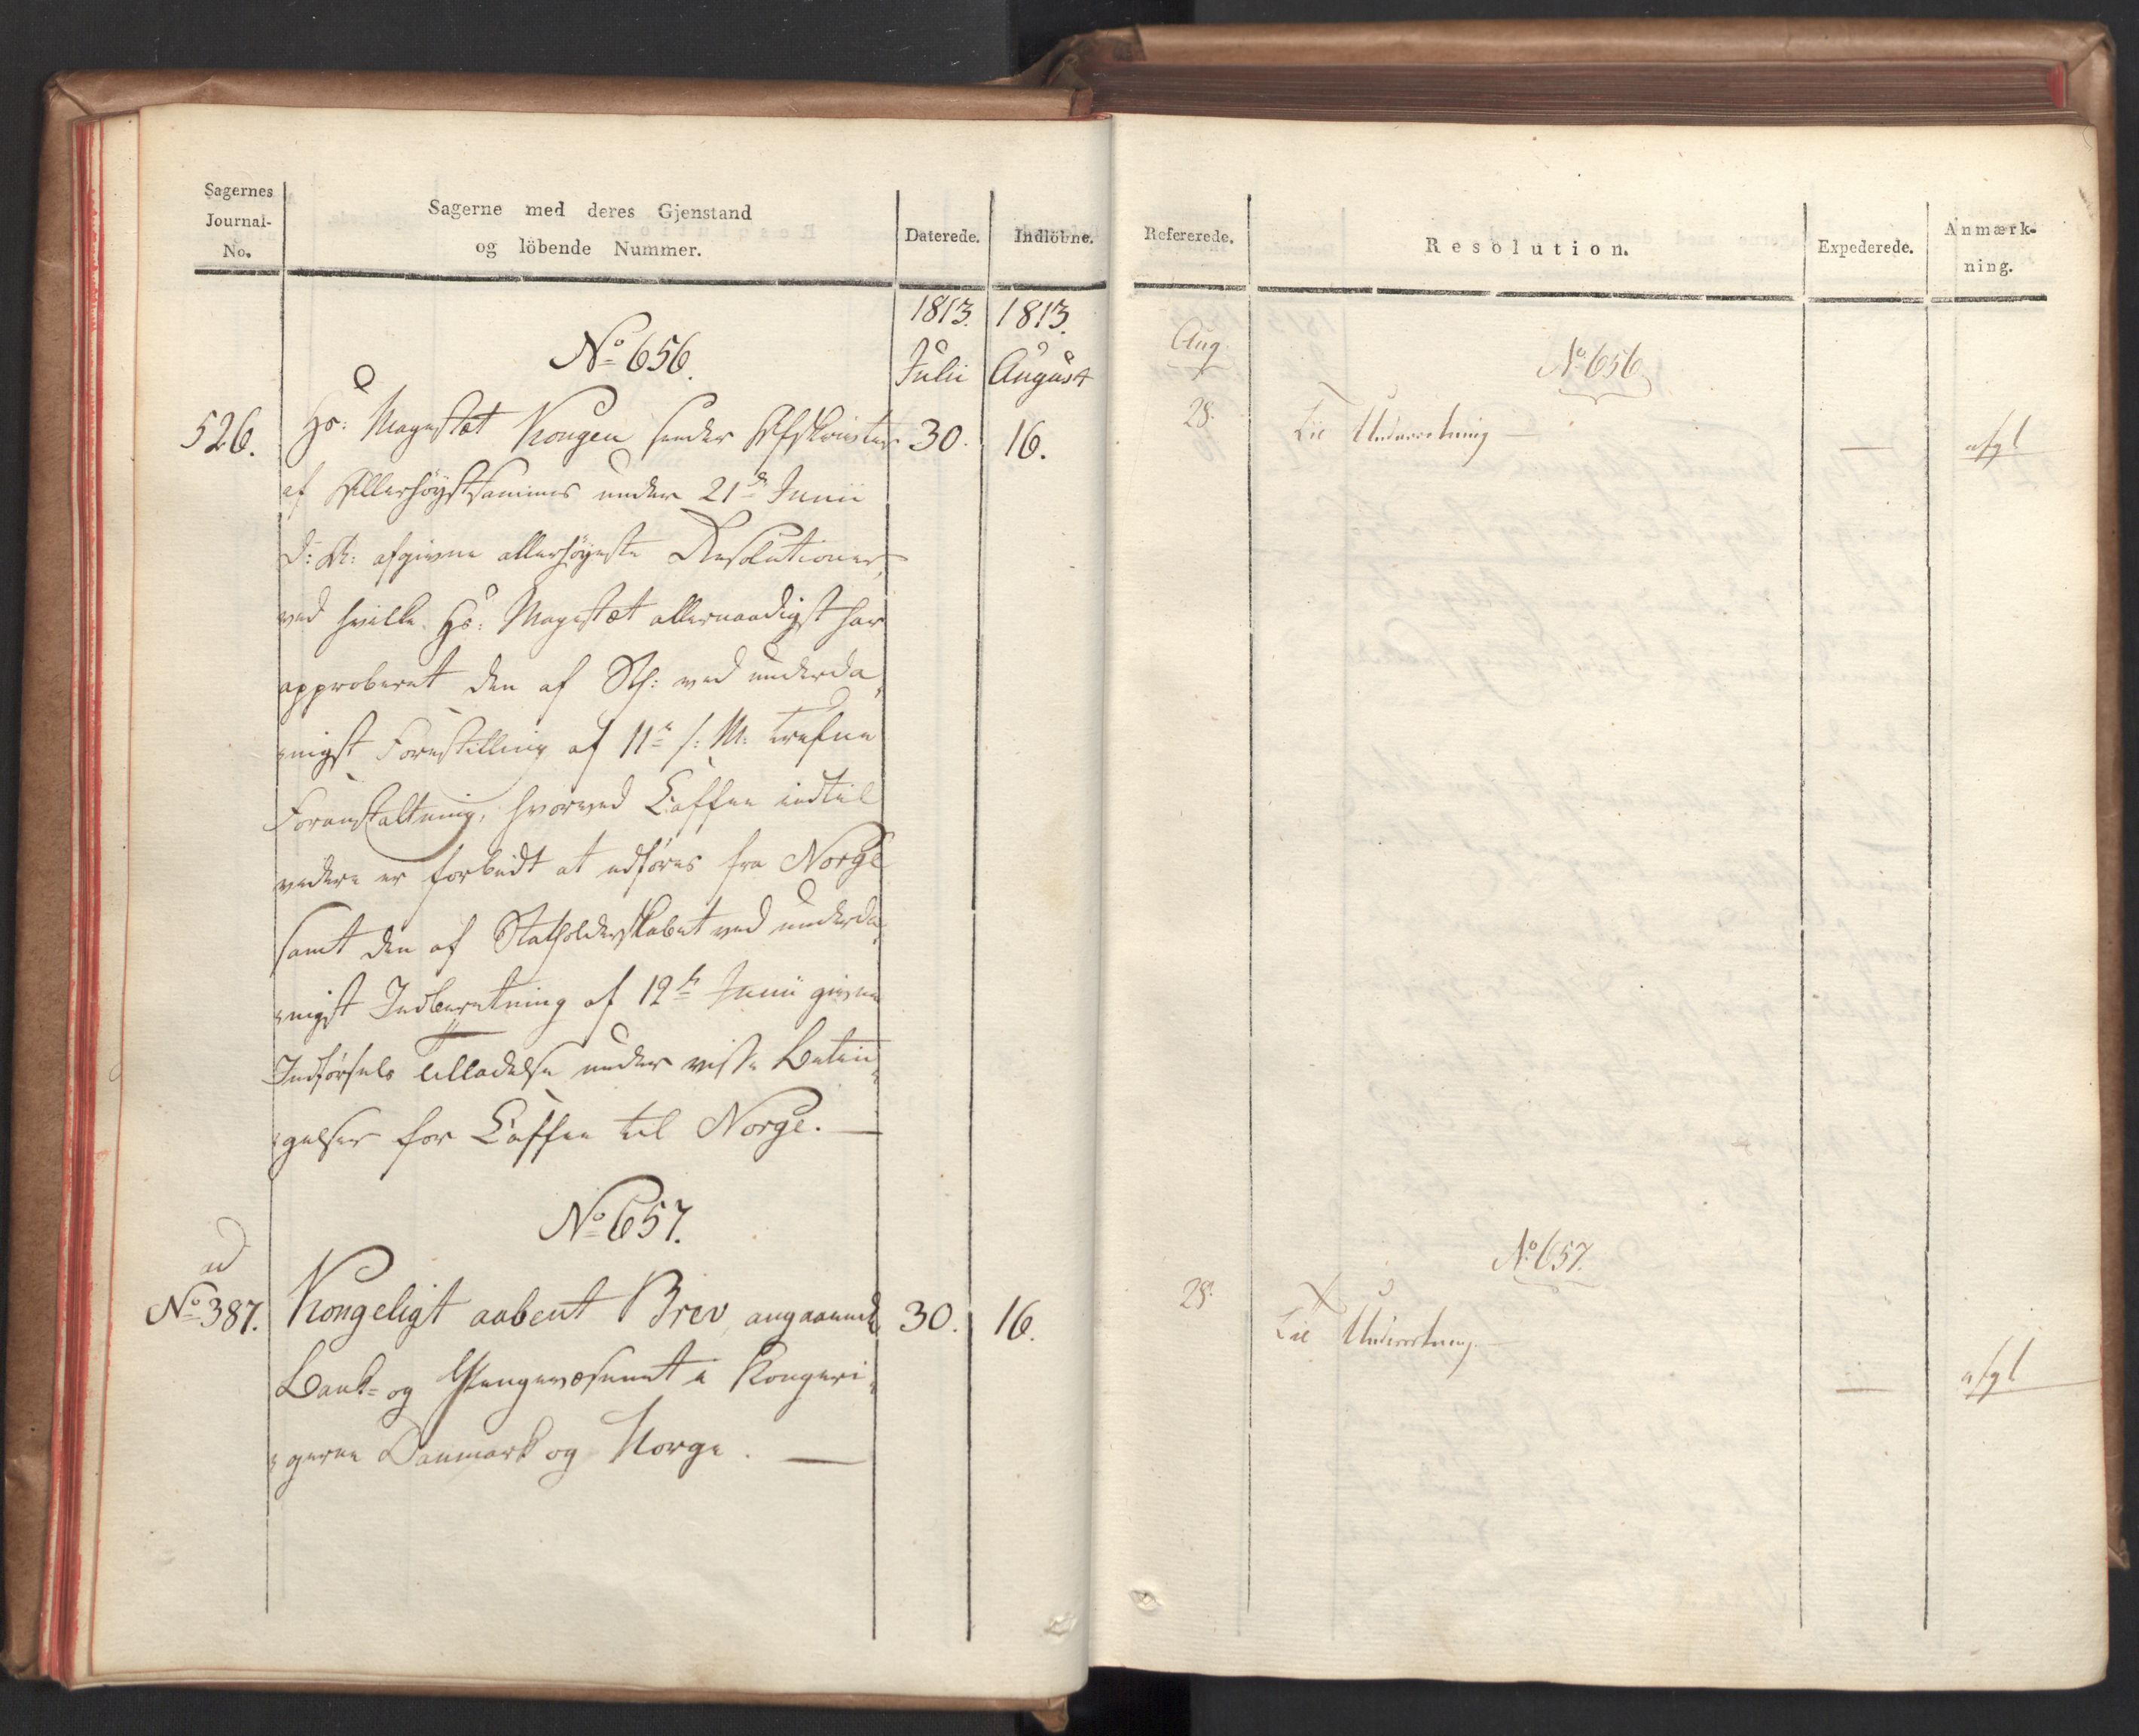 Sagernes
Journal-
No.
Sagerne med deres Gjenstand
og löbende Nummer.
Daterede.
Indlöbne.
1813. 1813.
Julii August
No 656.
526. Hs: Mayestæt Kongen sender Afskrifter 30. 16.
af Allerhöystsammes under 21de Junii
d: A: afgivne allerhöyeste Resolutioner,
ved hvilke Hs: Mayestæt allernaadigst har
approberet den af Sth: ved underda„
„nigst Forestilling af 11te s: M: trefne
Foranstaltning, hvorved Caffee indtil
videre er forbudt at udföres fra Norge
samt den af Statholderskabet ved underda„
„nigst Indberetning af 12te Junii givne
Indförsels Tilladelse under visse Betin„
„gelser for Caffee til Norge. —
No 657.
ad
No 387. Kongeligt aabent Brev angaaende 30. 16.
Bank- og Pengevæsenet i Kongeri„
„gerne Danmark og Norge. —
Refererede.
Resolution.
Expederede.
Anmærk-
ning.
Aug.
No 656
28. Til Underretning — — afgl
No 657.
28. Til Underretning. — — afgl